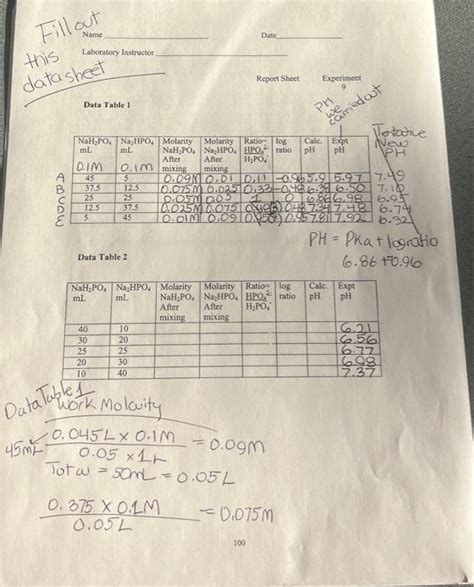 Fill out
this
data sheet
Name
Date
Laboratory Instructor
Report Sheet Experiment
9
PH
we
carried out
Data Table 1
Tentative
New
PH
NaH₂PO₄ mL Na₂HPO₄ mL Molarity NaH₂PO₄ After mixing Molarity Na₂HPO₄ After mixing Ratio= HPO₄²⁻ H₂PO₄⁻ log ratio Calc. pH Expt pH
0.1M 0.1M
A 45 5 0.09M 0.01 0.11 -0.96 5.9 5.97 7.49
B 37.5 12.5 0.075M 0.025 0.33 -0.48 6.38 6.50 7.10
C 25 25 0.05M 0.05 1 0 6.86 6.98 6.95
D 12.5 37.5 0.025M 0.075 0.48 7.34 7.48 6.74
E 5 45 0.01M 0.09 0.95 7.81 7.92 6.32
PH = PKa + log ratio
6.86 + 0.96
Data Table 2
NaH₂PO₄ mL Na₂HPO₄ mL Molarity NaH₂PO₄ After mixing Molarity Na₂HPO₄ After mixing Ratio= HPO₄²⁻ H₂PO₄⁻ log ratio Calc. pH Expt pH
40 10 6.21
30 20 6.56
25 25 6.77
20 30 6.98
10 40 7.37
Data Table 1
Work Molarity
45mL 0.045L x 0.1M = 0.09M
0.05 x 1L
Total = 50mL = 0.05L
0.375 x 0.1M = 0.075M
0.05L
100